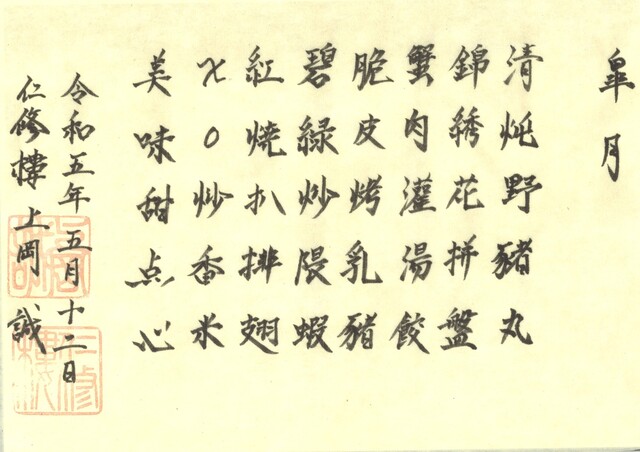 皐月
清炖野豬丸
錦綉花拼盤
蟹肉灌湯餃
脆皮烤乳豬
碧綠炒隈蝦
紅燒扒排翅
XO炒香米
美味甜点心
令和五年五月十二日
仁修樓 上岡 誠